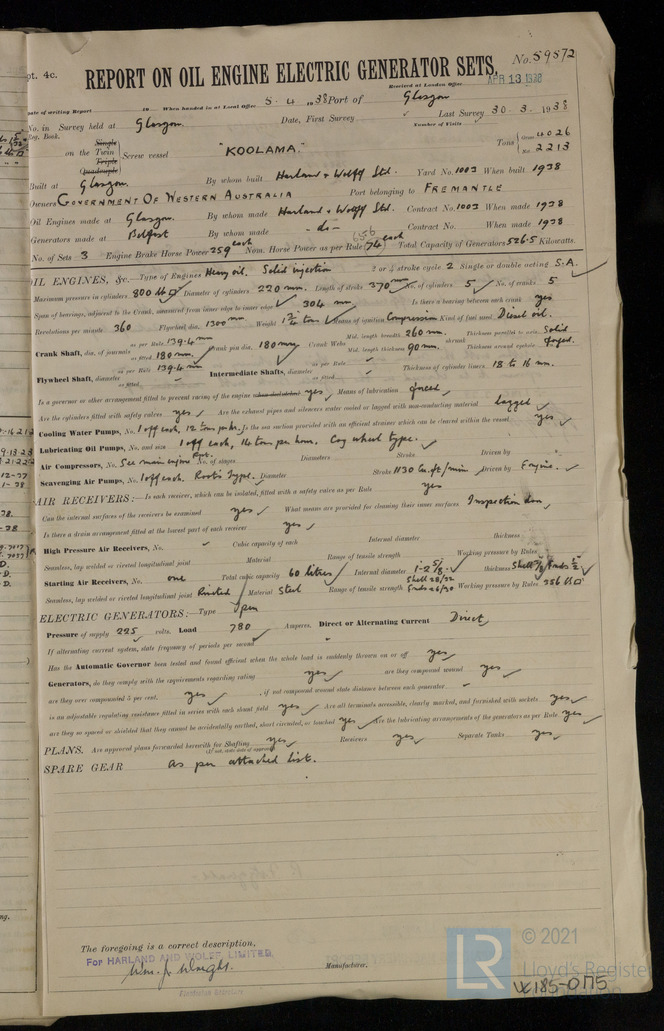 pt. 4c.
REPORT ON OIL ENGINE ELECTRIC GENERATOR SETS.
No. 59572
Received at London Office APR 13 1938
Date of writing Report 19 When handed in at Local Office 5.4.1938 Port of Glasgow
No. in Survey held at Glasgow Date, First Survey Last Survey 30.3.1938
Reg. Book. Number of Visits
on the Single Twin Triple Quadruple Screw vessel "KOOLAMA." Tons Gross 4026 Net 2213
Built at Glasgow. By whom built Harland & Wolff Ltd. Yard No. 1003 When built 1938
Owners GOVERNMENT OF WESTERN AUSTRALIA Port belonging to FREMANTLE
Oil Engines made at Glasgow. By whom made Harland & Wolff Ltd. Contract No. 1003 When made 1938
Generators made at Belfast By whom made -do- Contract No. When made 1938
No. of Sets 3 Engine Brake Horse Power 259 each Nom. Horse Power as per Rule 74 each Total Capacity of Generators 526.5 Kilowatts.
OIL ENGINES, &c.—Type of Engines Heavy oil. Solid injection 2 or 4 stroke cycle 2 Single or double acting S.A.
Maximum pressure in cylinders 800 lb □" Diameter of cylinders 220 mm. Length of stroke 370 mm No. of cylinders 5 No. of cranks 5
Span of bearings, adjacent to the Crank, measured from inner edge to inner edge 304 mm Is there a bearing between each crank yes
Revolutions per minute 360 Flywheel dia. 1300 mm. Weight 1¾ tons Means of ignition Compression Kind of fuel used Diesel oil.
Crank Shaft, dia. of journals as per Rule 139.4 mm as fitted 180 mm. Crank pin dia. 180 mm Crank Webs Mid. length breadth 260 mm. Mid. length thickness 90 mm. shrunk Thickness parallel to axis Solid Thickness around eyehole forged.
Flywheel Shaft, diameter as per Rule 139.4 mm as fitted Intermediate Shafts, diameter as per Rule as fitted Thickness of cylinder liners 18 to 16 mm.
Is a governor or other arrangement fitted to prevent racing of the engine yes Means of lubrication forced
Are the cylinders fitted with safety valves yes Are the exhaust pipes and silencers water cooled or lagged with non-conducting material lagged
Cooling Water Pumps, No. 1 off each, 12 tons per hr. Is the sea suction provided with an efficient strainer which can be cleared within the vessel yes
Lubricating Oil Pumps, No. and size 1 off each, 14 tons per hour. Cog wheel type.
Air Compressors, No. See main engine Rpt. No. of stages Diameters Stroke Driven by
Scavenging Air Pumps, No. 1 off each. Roots type. Diameter Stroke 1130 cu. ft/min Driven by Engine.
AIR RECEIVERS:—Is each receiver, which can be isolated, fitted with a safety valve as per Rule yes
Can the internal surfaces of the receivers be examined yes What means are provided for cleaning their inner surfaces Inspection door
Is there a drain arrangement fitted at the lowest part of each receiver yes
High Pressure Air Receivers, No. Cubic capacity of each Internal diameter thickness
Seamless, lap welded or riveted longitudinal joint Material Range of tensile strength Working pressure by Rules
Starting Air Receivers, No. one Total cubic capacity 60 litres Internal diameter 1'-2 5/8" thickness Shell 3/8" Ends ½"
Seamless, lap welded or riveted longitudinal joint Riveted Material Steel Range of tensile strength Shell 28/32 Ends 26/30 Working pressure by Rules 356 lb □"
ELECTRIC GENERATORS:—Type open
Pressure of supply 225 volts. Load 780 Amperes. Direct or Alternating Current Direct
If alternating current system, state frequency of periods per second
Has the Automatic Governor been tested and found efficient when the whole load is suddenly thrown on or off yes
Generators, do they comply with the requirements regarding rating yes are they compound wound yes
are they over compounded 5 per cent. yes , if not compound wound state distance between each generator
is an adjustable regulating resistance fitted in series with each shunt field yes Are all terminals accessible, clearly marked, and furnished with sockets yes
are they so spaced or shielded that they cannot be accidentally earthed, short circuited, or touched yes Are the lubricating arrangements of the generators as per Rule yes
PLANS. Are approved plans forwarded herewith for Shafting yes Receivers yes Separate Tanks yes
(If not state date of approval)
SPARE GEAR as per attached list.
The foregoing is a correct description,
For HARLAND AND WOLFF, LIMITED,
Wm. J. Wright.
Manufacturer.
LR © 2021
Lloyd's Register
Foundation
W185-0115